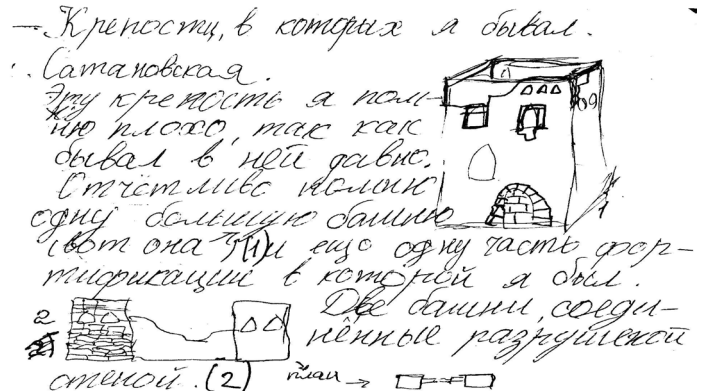 – Крепости, в которых я бывал.
Сатановская.
Эту крепость я пом-
ню плохо, так как
бывал в ней давно.
Отчётливо помню
одну большую башню
(вот она (1) и ещо одну часть фор-
тификации в которой я был.
2 Две башни, соеди-
нённые разрушеной
стеной. (2) план →
1